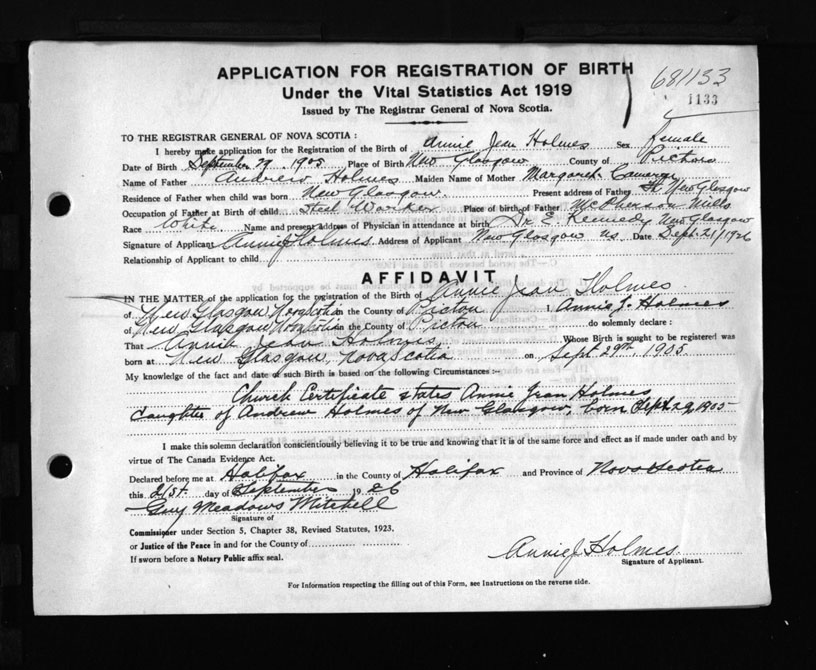 APPLICATION FOR REGISTRATION OF BIRTH
Under the Vital Statistics Act 1919
Issued by The Registrar General of Nova Scotia.
681133
1133
TO THE REGISTRAR GENERAL OF NOVA SCOTIA :
I hereby make application for the Registration of the Birth of Annie Jean Holmes Sex female
Date of Birth September 29. 1905 Place of Birth New Glasgow County of Pictou
Name of Father Andrew Holmes Maiden Name of Mother Margaret
Residence of Father when child was born New Glasgow. Present address of Father New Glasgow
Occupation of Father at Birth of child Steel Worker Place of birth of Father McPherson Mills
Race White Name and present address of Physician in attendance at birth Dr E. Kennedy New Glasgow
Signature of Applicant Annie J Holmes. Address of Applicant New Glasgow N.S. Date Sept. 21/1926
Relationship of Applicant to child
AFFIDAVIT
IN THE MATTER of the application for the registration of the Birth of Annie Jean Holmes
of New Glasgow Nova Scotia in the County of Picton I, Annie J. Holmes
of New Glasgow Nova Scotia in the County of Picton do solemnly declare :
That Annie Jean Holmes Whose Birth is sought to be registered was
born at New Glasgow, Nova Scotia on Sept 29th, 1905.
My knowledge of the fact and date of such Birth is based on the following Circumstances :-
Church Certificate states Annie Jean Holmes
daughter of Andrew Holmes of New Glasgow, born Sept. 29, 1905
I make this solemn declaration conscientiously believing it to be true and knowing that it is of the same force and effect as if made under oath and by
virtue of The Canada Evidence Act.
Declared before me at Halifax in the County of Halifax and Province of Nova Scotia
this 21st. day of September 1926
Guy Meadows Mitchell
Signature of
Commissioner under Section 5, Chapter 38, Revised Statutes, 1923.
or Justice of the Peace in and for the County of
If sworn before a Notary Public affix seal.
Annie J Holmes.
Signature of Applicant.
For Information respecting the filling out of this Form, see Instructions on the reverse side.